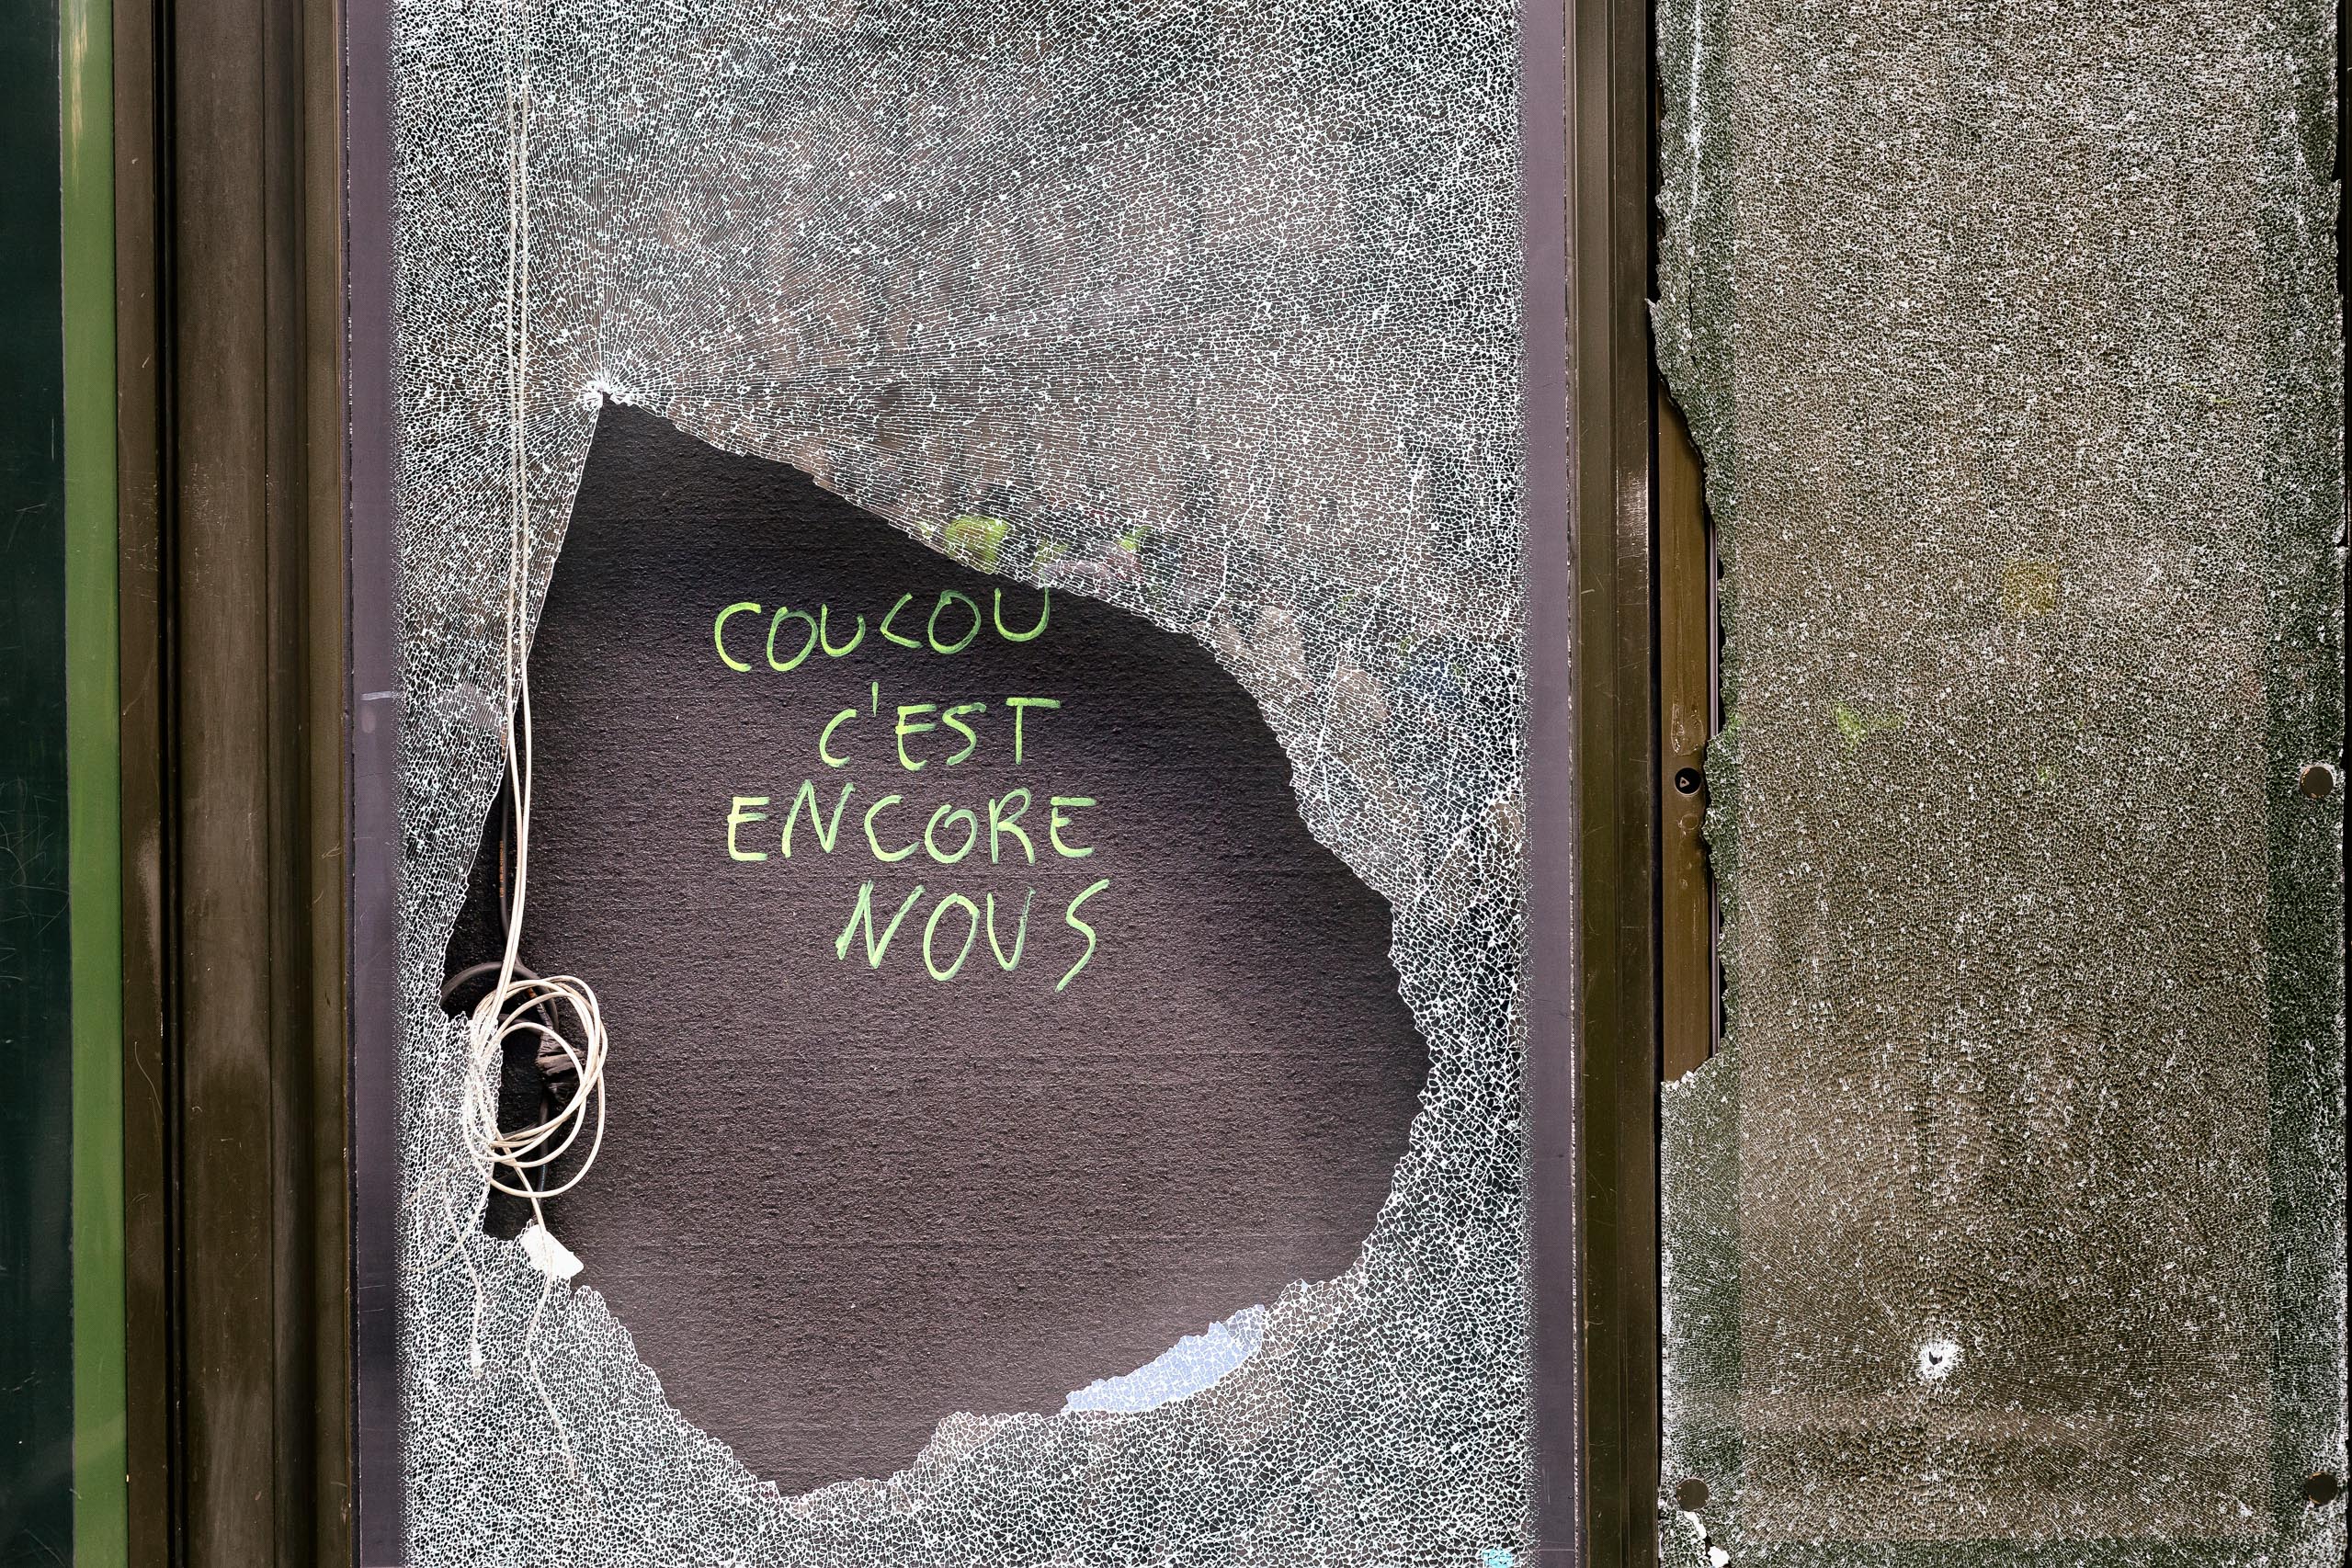 COUCOU
C'EST
ENCORE
NOUS